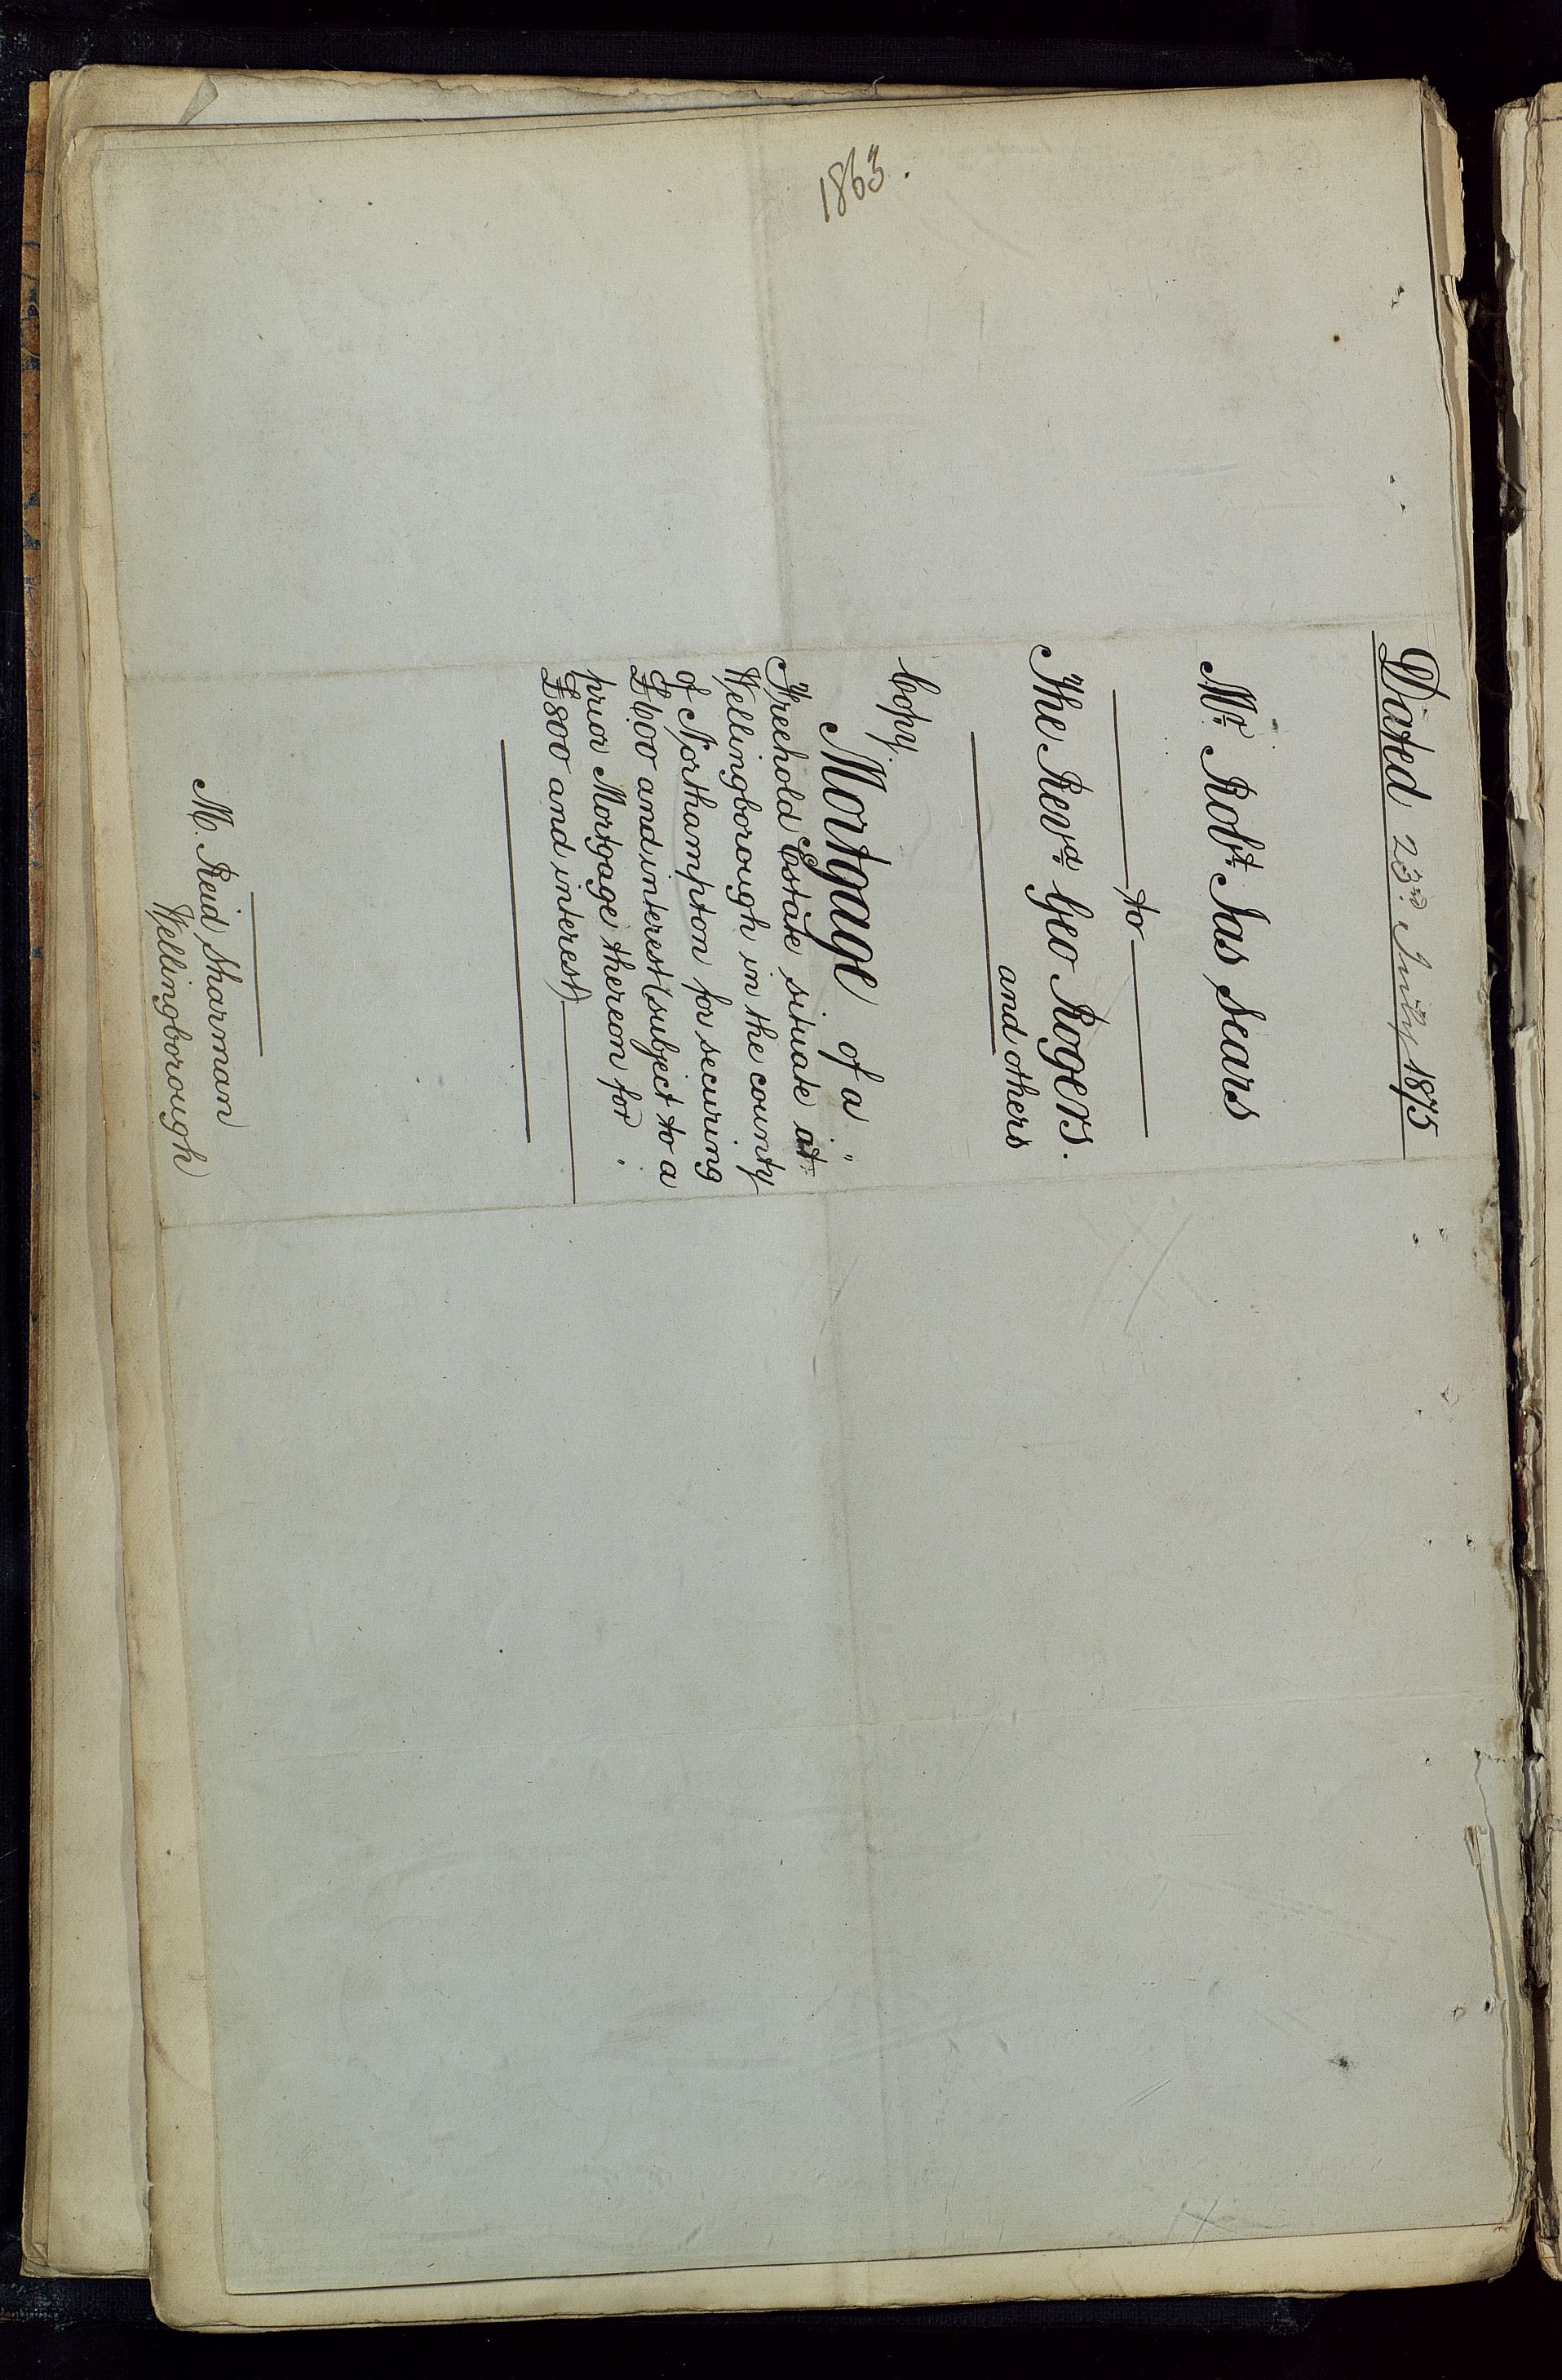 1863.
Dated 23rd July 1875
Mr Robt Jas Sears
to
The Revd Geo Rogers.
and others
Copy.
Mortgage of a "
Freehold Estate situate at
Wellingborough in the county
of Northampton for securing
£600 and interest (subject to a
prior Mortgage thereon for .
£800 and interest)
M. Reid Sharman
Wellingborough